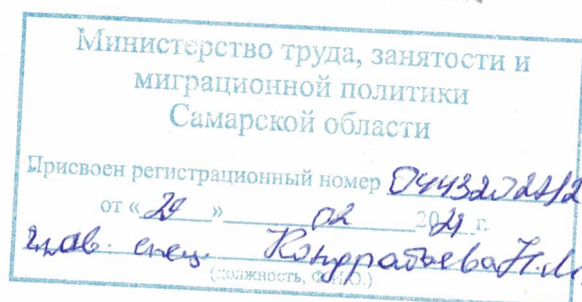 Министерство труда, занятости и
миграционной политики
Самарской области
Присвоен регистрационный номер
от « 29 » 02 20 г.
глав. спец. Кондратьева Н.М
(должность, Ф.И.О.)